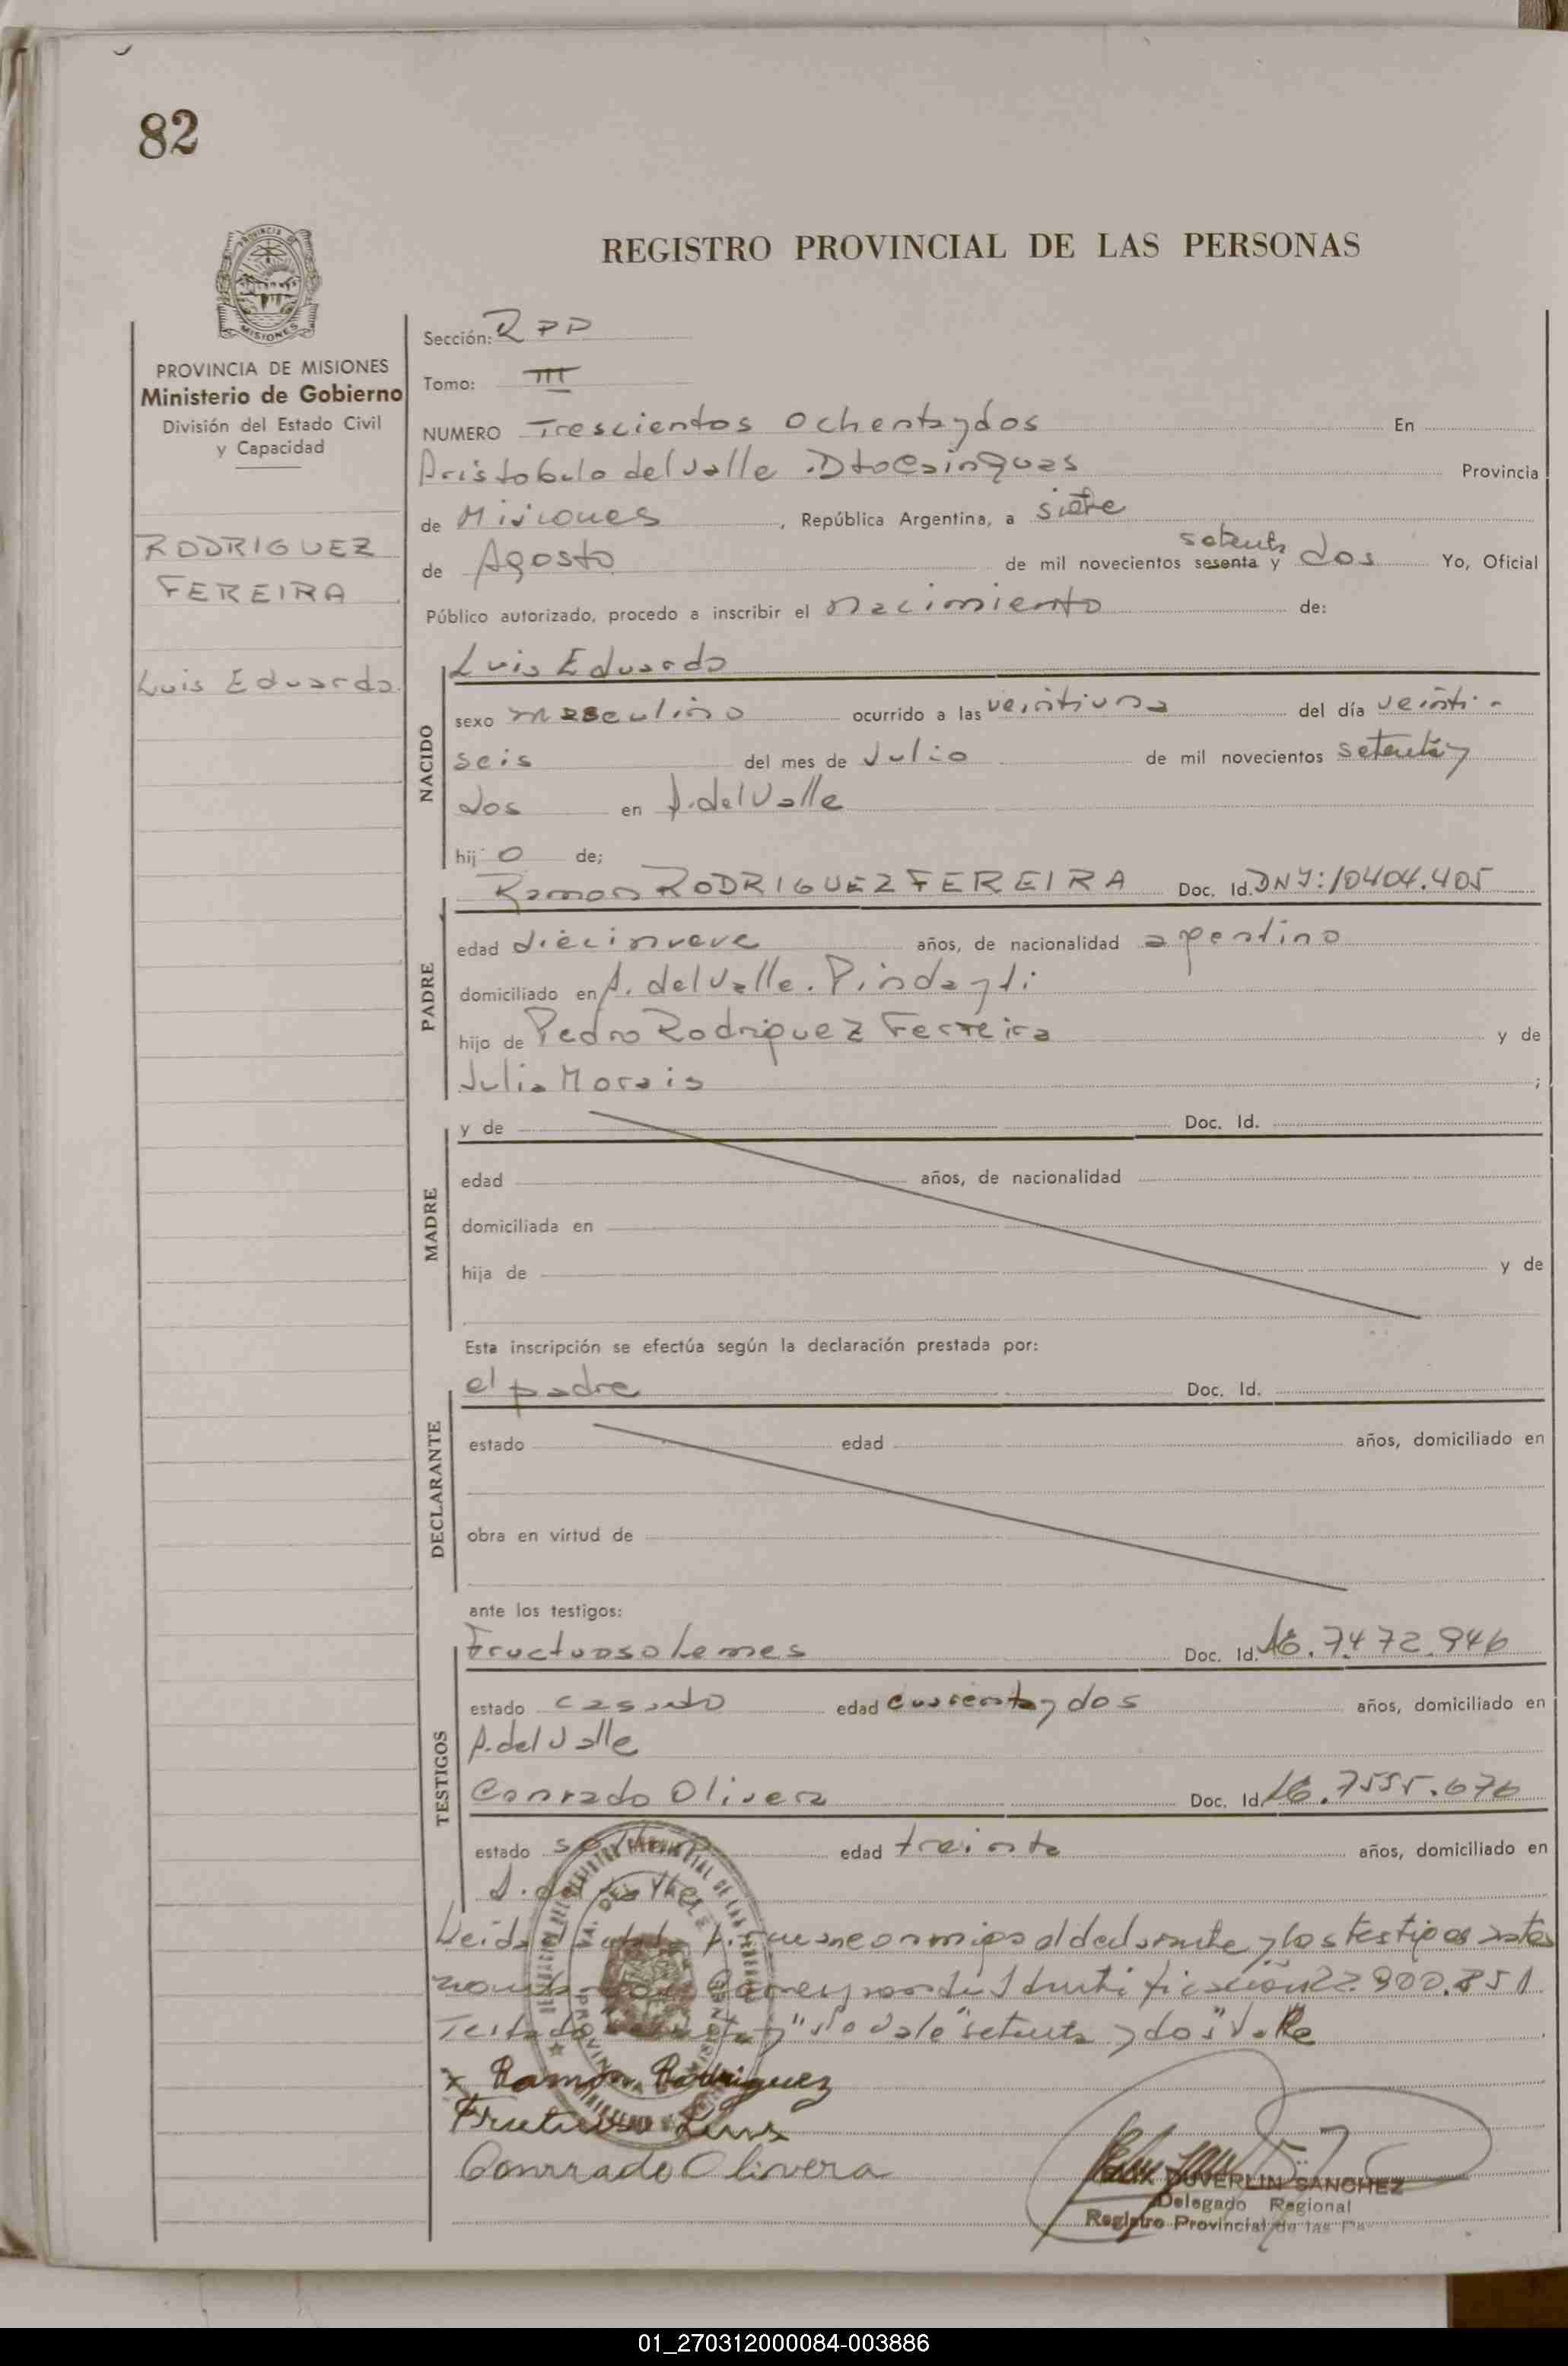 82
REGISTRO PROVINCIAL DE LAS PERSONAS
PROVINCIA DE MISIONES
Ministerio de Gobierno
División del Estado Civil
y Capacidad
RODRIGUEZ
FEREIRA
Luis Eduardo
Sección:
Tomo: III
NUMERO Trescientos Ochenta y dos En
Aristobulo del Valle . Dto Cainguas Provincia
de Misiones , República Argentina, a siete
setenta
de Agosto de mil novecientos sesenta y dos Yo, Oficial
Público autorizado, procedo a inscribir el nacimiento de:
NACIDO
Luis Eduardo
sexo masculino ocurrido a las veintiuna del día veinti-
seis del mes de Julio de mil novecientos setenta y
dos en A. del Valle
hij o de;
PADRE
Ramon RODRIGUEZ FEREIRA Doc. Id. DNI: 10404.405
edad diecinueve años, de nacionalidad argentino
domiciliado en A. del Valle. Pindayti
hijo de Pedro Rodriguez Ferreira y de
Julia Morais ;
MADRE
y de Doc. Id.
edad años, de nacionalidad
domiciliada en
hija de y de
Esta inscripción se efectúa según la declaración prestada por:
DECLARANTE
el padre Doc. Id.
estado edad años, domiciliado en
obra en virtud de
ante los testigos:
TESTIGOS
Fructuoso Lemes Doc. Id. 7.472.946
estado casado edad cuarenta y dos años, domiciliado en
A. del Valle
Conrado Olivera Doc. Id. 7555.676
estado soltero edad treinta años, domiciliado en
A. del Valle
Leida el acta firman conmigo el declarante y los testigos antes
Corresponde Identificación 22.900.851.
Testado "sesenta y" no vale "setenta y dos" Vale
x Ramon Rodriguez
Frutuoso Lems
Conrrado Olivera
DUVERLIN SANCHEZ
Delegado Regional
Registro Provincial de las
01_270312000084-003886